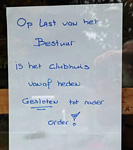 Op last van het
Bestuur
is het clubhuis
vanaf heden
Gesloten tot nader
order!